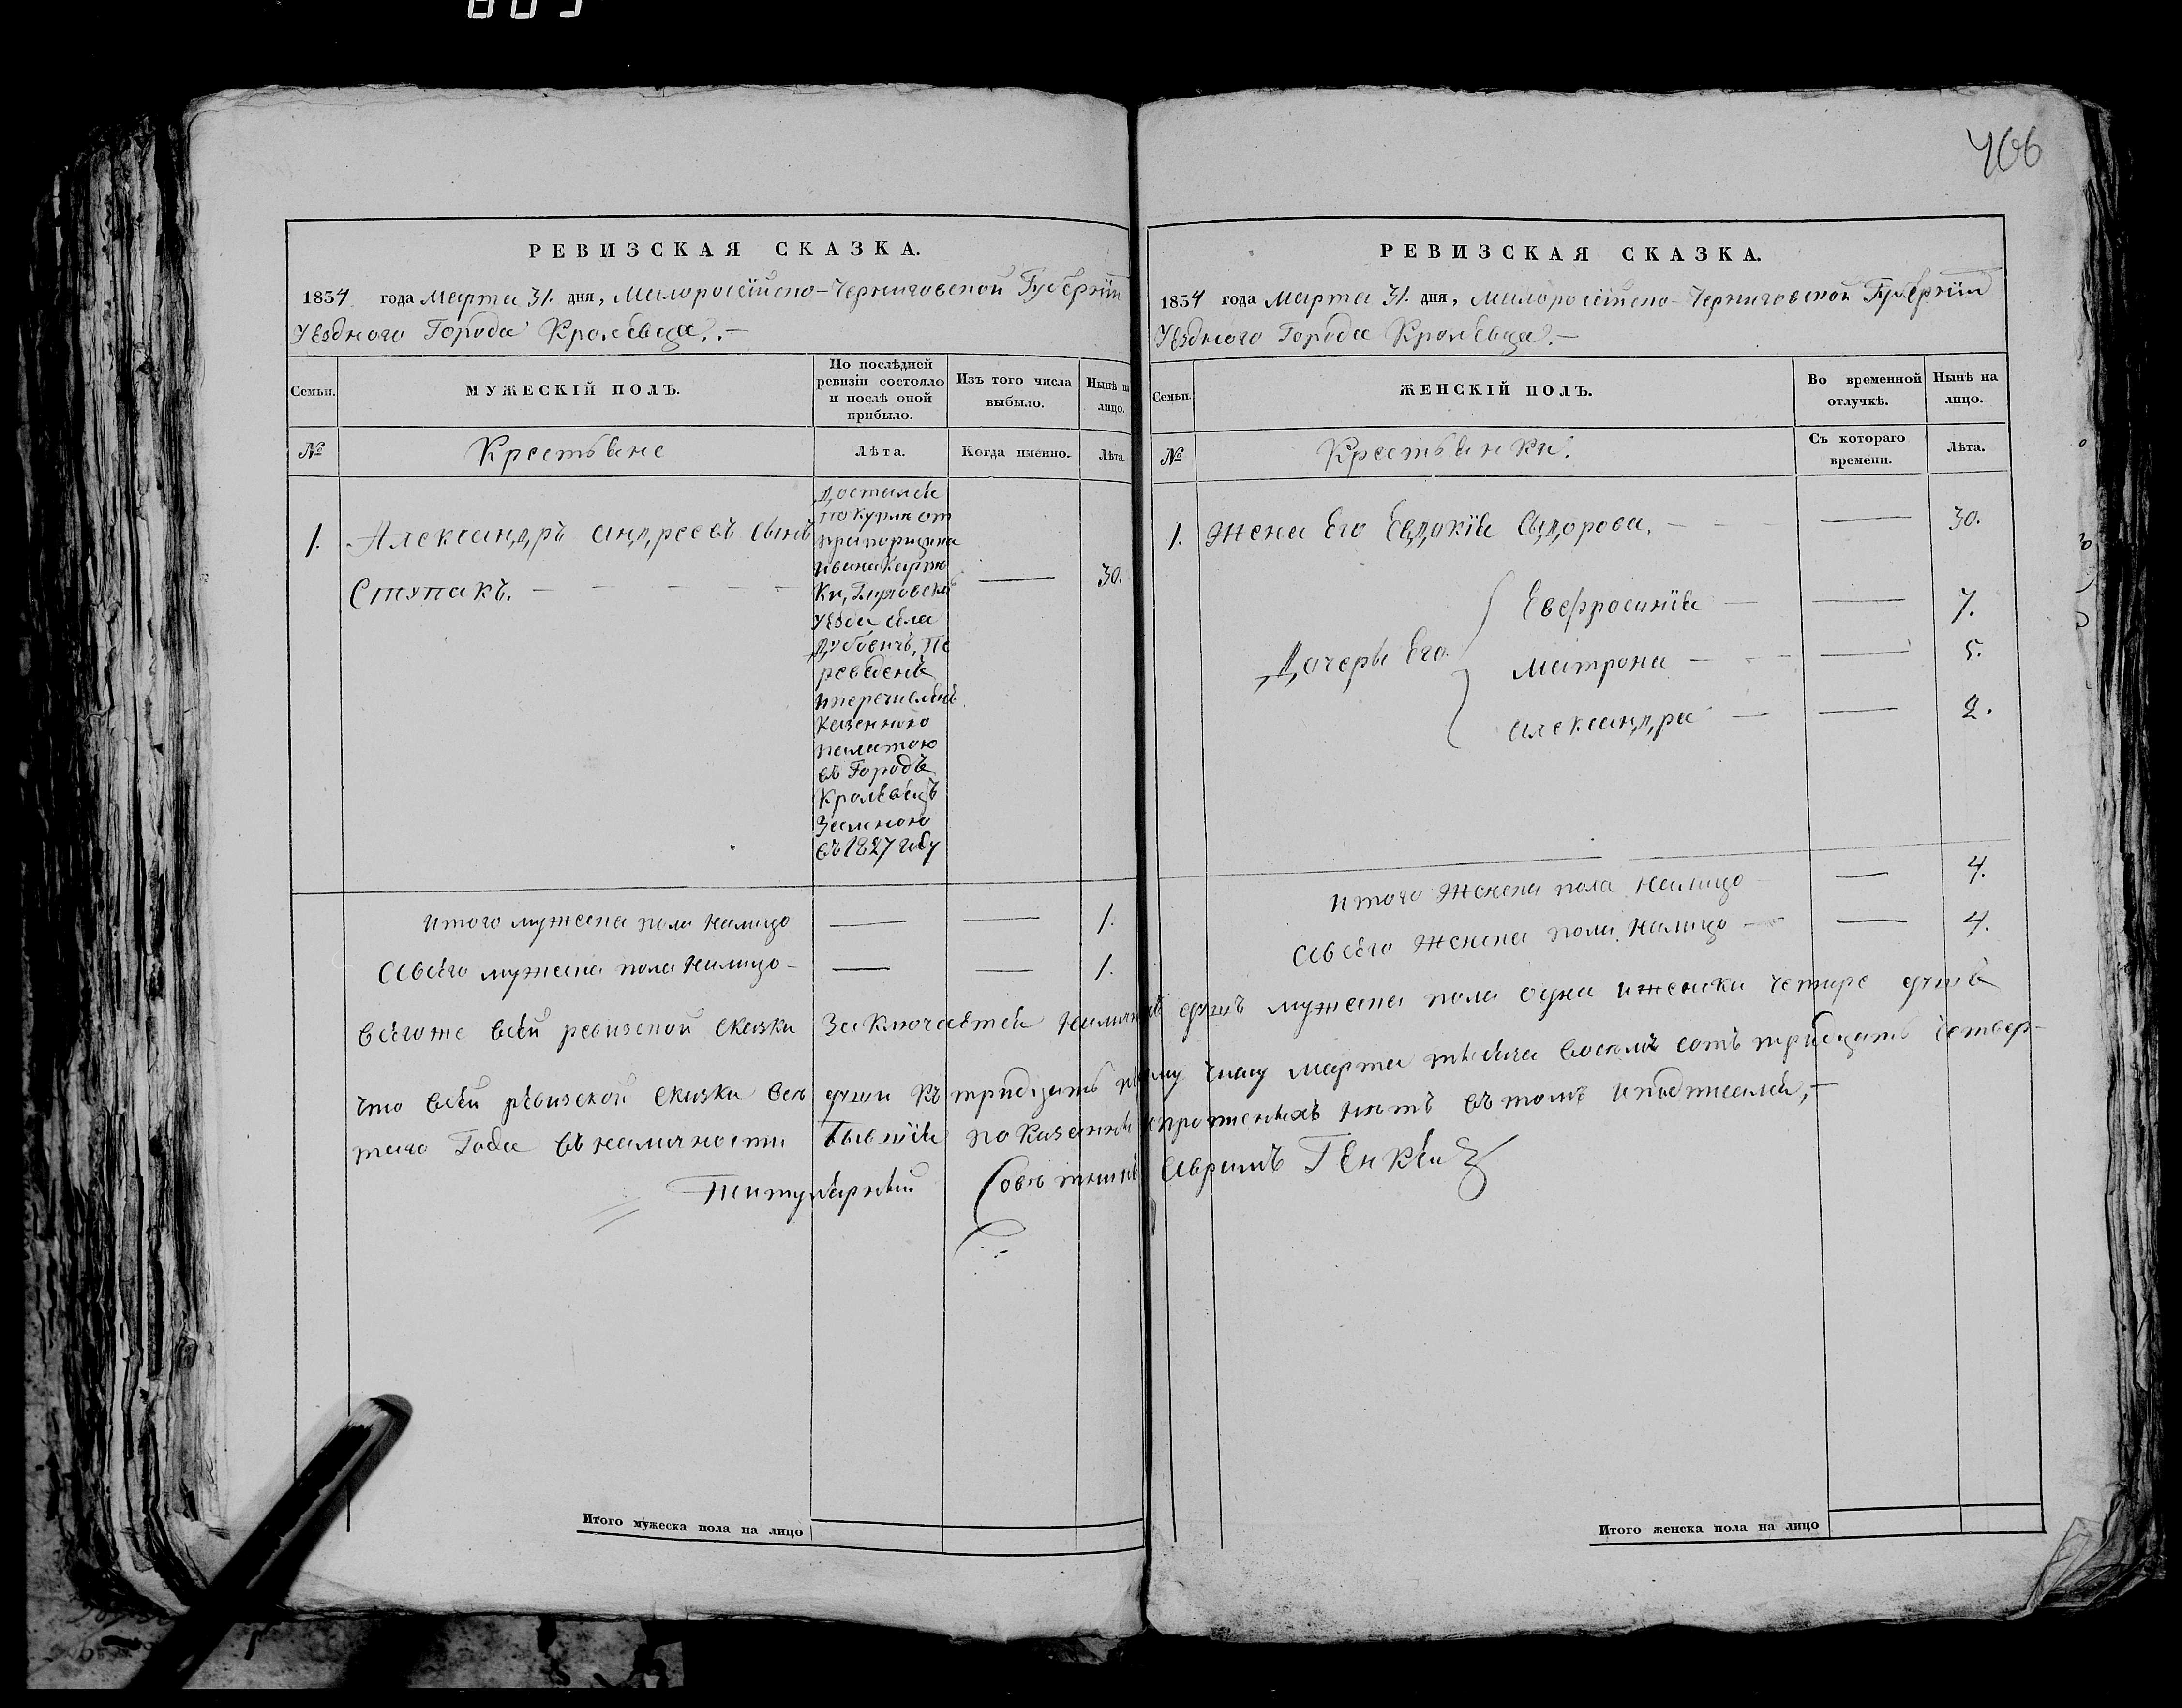 466
РЕВИЗСКАЯ СКАЗКА.
1834 года Марта 31. дня, Малороссийско-Черниговской Губернии
Уездного Города Кролевца.—
Семьи.
МУЖЕСКІЙ ПОЛЪ.
По послѣдней ревизіи состояло и послѣ оной прибыло.
Изъ того числа выбыло.
Нынѣ на лицо.
№
Крестьяне
Лѣта.
Когда именно.
Лѣта.
1.
Александръ Андреевъ сынъ
Ступакъ. —
Достался
покупке от
прапорщика
Ивана
уезда села
Дубовичъ, Пе
реведенъ
и перечисленъ
казенною
палатою
въ Городъ
Кролевецъ
Зимою
въ 1827 году
30.
Итого мужеска пола налицо — — 1.
А всего мужеска пола налицо — — — 1.
РЕВИЗСКАЯ СКАЗКА.
1834 года Марта 31. дня, Малороссийско-Черниговской Губернии
Уездного Города Кролевца.—
Семьи.
ЖЕНСКІЙ ПОЛЪ.
Во временной отлучкѣ.
Нынѣ на лицо.
№
Крестьянки.
Съ котораго времени.
Лѣта.
1. Жена его Евдокия Сидорова. — — 30.
Дочеры его
Евфросиния — — 7.
Матрона — — 5.
Александра — — 2.
Итого Женска пола налицо — 4.
А всего Женска пола налицо — — 4.
Всего же в сей ревизской сказки заключается наличныхъ душъ мужеска пола одна и женска четыре душы
что в сей ревизской сказки все души къ тридцать первому числу марта тысяча восемъ сотъ тридцать четвер-
таго Года въ наличности бывшие показанны и прописныхъ нетъ въ томъ и подписался,—
Титулярный Советникъ Аврамъ
Итого мужеска пола на лицо
Итого женска пола на лицо